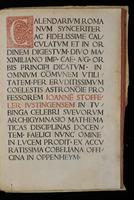 CALENDARIVM ROMA
NVM SYNCERITER
AC FIDELISSIME CAL
CVLATVM ET IN OR
DINEM DIGESTVM DIVO MA
XIMILIANO IMP CAE AVG OR
BIS PRINCIPI DICATVM IN
OMNIVM COMVNEM VTILI
TATEM PER ERVDITISSIMVM
COELESTIS ASTRONOIE PRO
FESSOREM IOANNE STOFFE
LER IVSTINGENSEM IN TV
BINGA CELEBRI SVEVORVM
ARCHIGYMNASIO MATHEMA
TICAS DISCIPLINAS DOCEN
TEM FAELICI NVNC OMINE
IN LVCEM PRODIT EX ACCV
RATISSIMA COBELIANA OFFI
CINA IN OPPENHEYM